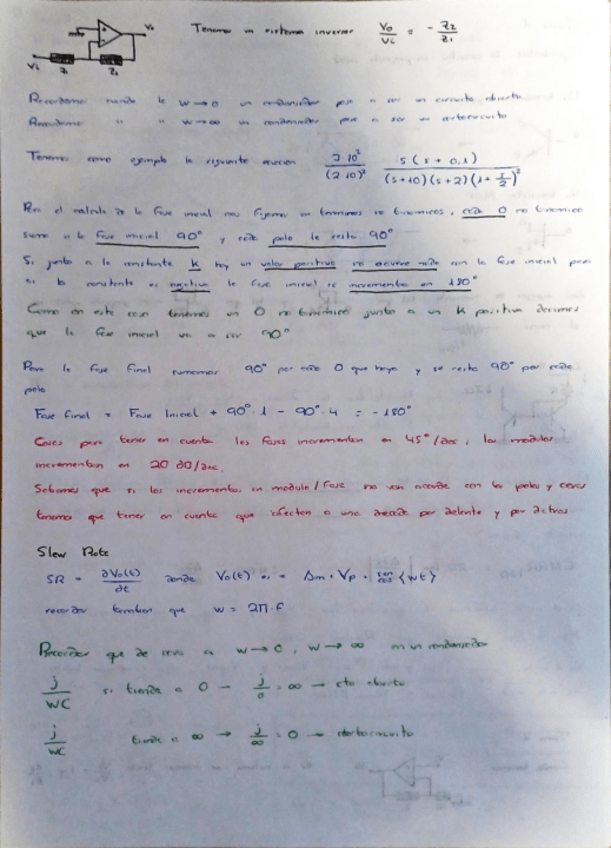 Vo
Tenemos un sistema inversor Vo/Vi = - Z2/Z1
Vi Z1 Z2
Recordamos cuando le w→0 un condensador pasa a ser un circuito abierto
Recordamos " " w→∞ un condensador pasa a ser un cortocircuito
Tenemos como ejemplo la siguiente ecuacion s(s + 0,1) / (s+10)(s+2)
Para el calculo de la fase inicial nos fijamos en terminos no binomicos, cada 0 no binomico
suma a la fase inicial 90° y cada polo le resta 90°
Si junto a la constante K hay un valor positivo no ocurre nada con la fase inicial pero
si la constante es negativa la fase inicial se incrementa en 180°
Como en este caso tenemos un 0 no binomico junto a un K positiva decimos
que la fase inicial va a ser 90°
Para la fase final sumamos 90° por cada 0 que haya y se resta 90° por cada
polo
Fase final = Fase Inicial + 90°·1 - 90°·4 = -180°
Cosas para tener en cuenta las fases incrementan en 45°/dec, los modulos
incrementan en 20 dB/dec.
Sabemos que si los incrementos en modulo/fase no van acorde con los polos y ceros
tenemos que tener en cuenta que afecten a una decada por delante y por detras
Slew Rate
SR = ∂Vo(t)/∂t donde Vo(t) = Am · Vp · sen/cos (wt)
recordar tambien que w = 2π·f
Recordar que de cara a w→0, w→∞ en un condensador
j/WC si tiende a 0 → j/0 = ∞ → cto abierto
j/WC tiende a ∞ → j/∞ = 0 → cortocircuito